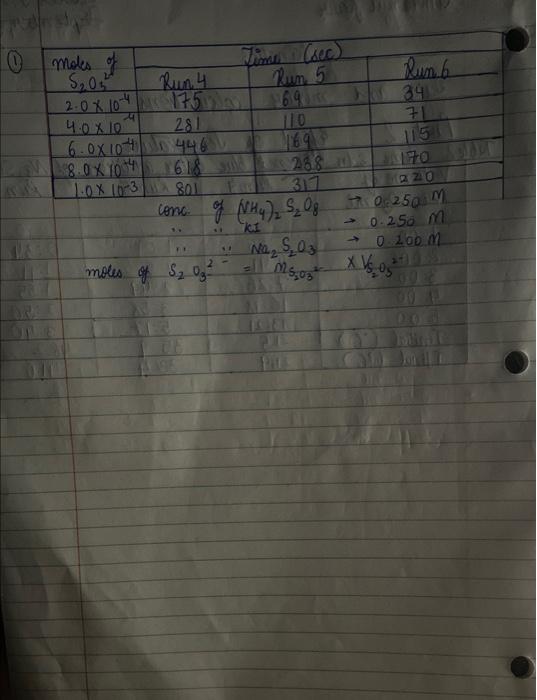 ①
Moles of S₂O₃²⁻ Time (sec)
Run 4 Run 5 Run 6
2.0 × 10⁻⁴ 175 69 34
4.0 × 10⁻⁴ 281 110 71
6.0 × 10⁻⁴ 446 169 115
8.0 × 10⁻⁴ 618 238 170
1.0 × 10⁻³ 801 317 220
conc. of (NH₄)₂ S₂O₈ → 0.250 M
,, ,, KI → 0.250 M
,, ,, Na₂S₂O₃ → 0.200 M
moles of S₂O₃²⁻ = M S₂O₃²⁻ × V S₂O₃²⁻